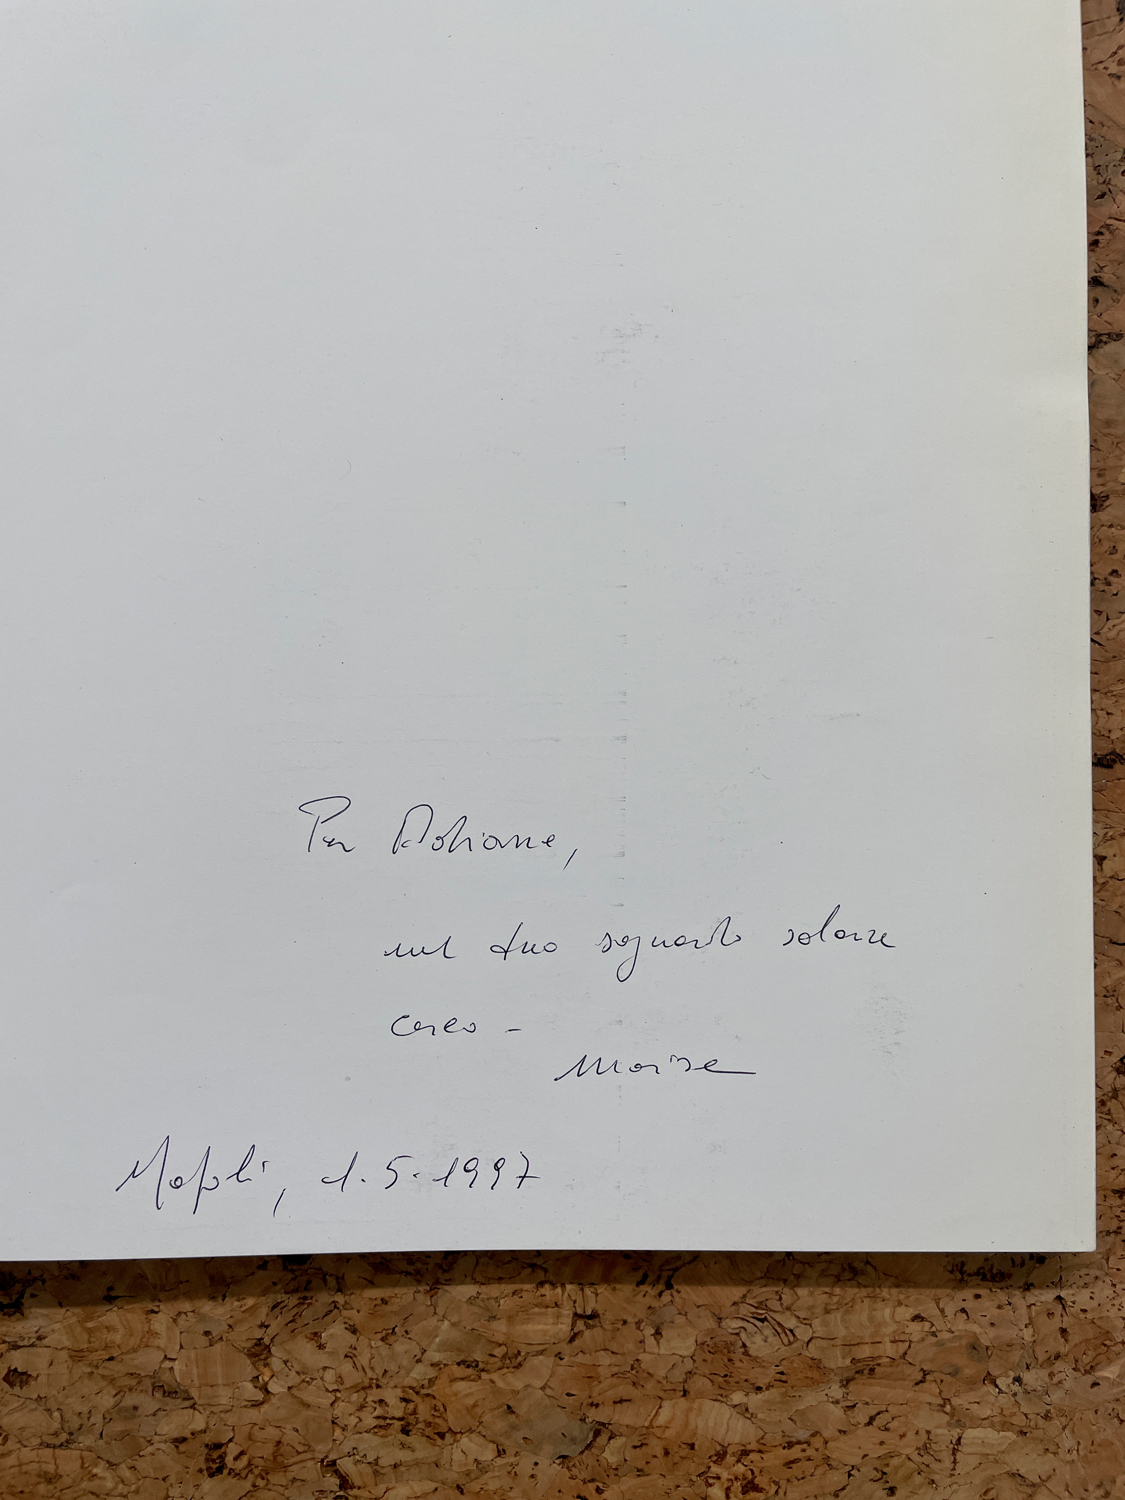 Per Adriana,
nel tuo sguardo solare
cerco -
Napoli, 1.5.1997